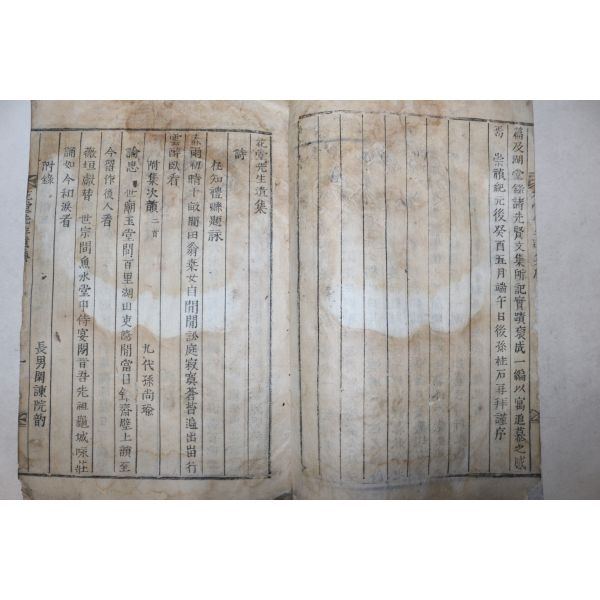 篇及湖堂錄諸先賢文集所記實蹟裒成一編以寓追慕之感
焉 崇禎紀元後癸酉五月端午日後孫柱石再拜謹序
花堂先生遺集
詩
在知禮縣題詠
雨初晴十畝閒田翁桑女自閒閒訟庭寂寞蒼苔遍出岫行
雲醉臥看
附集次韻 二首
九代孫尚瑜
論思 世廟玉堂間百里湖山吏隱閒當日 齋壁上讀至
今留作後人看
敬垣獻替 世宗間魚水堂中侍宴閒吾先祖 城咏壯
誦如今和淚看
附錄
長男閑諫院韵